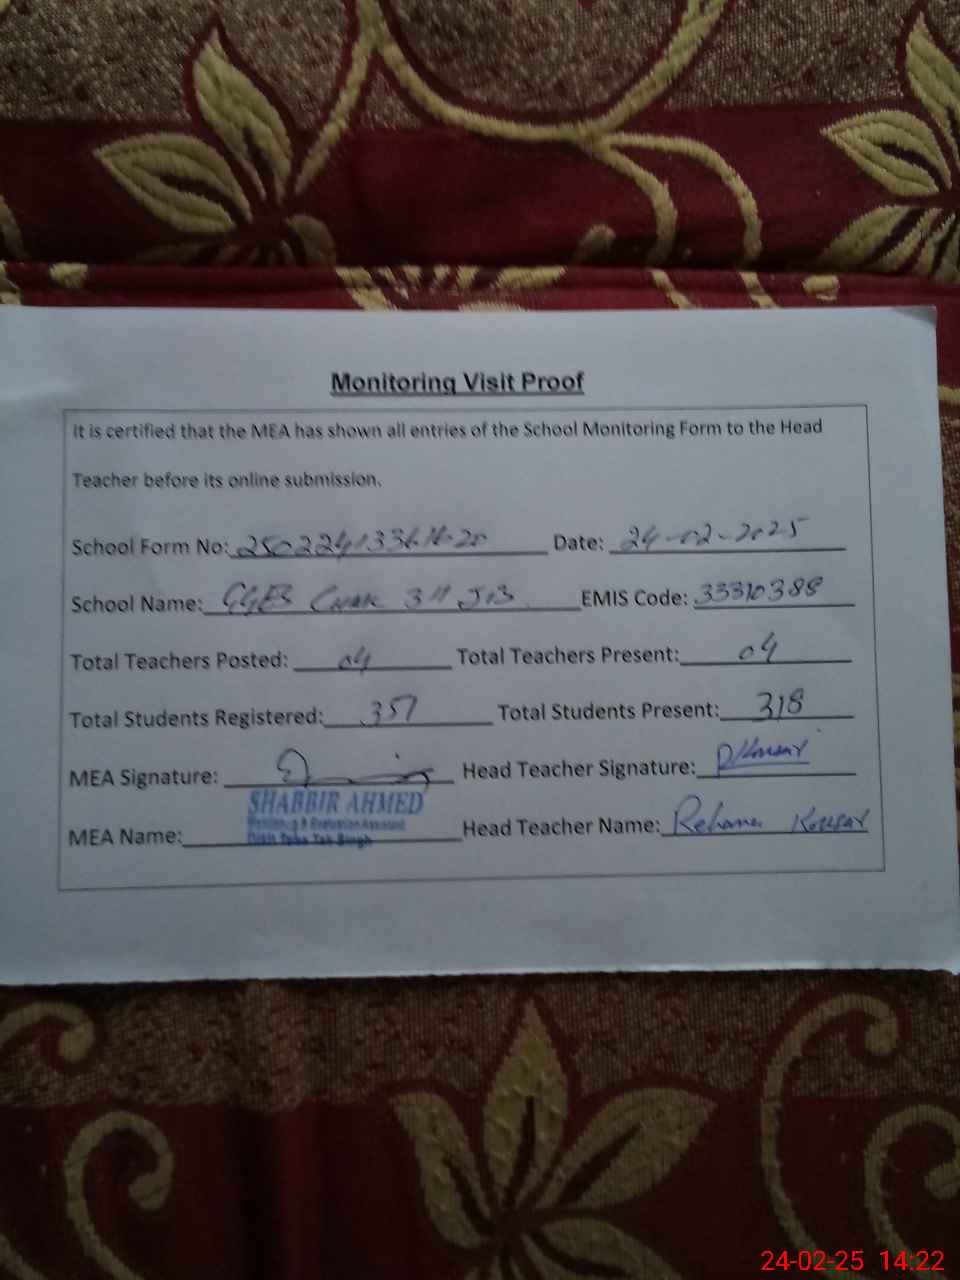 Monitoring Visit Proof
It is certified that the MEA has shown all entries of the School Monitoring Form to the Head
Teacher before its online submission.
School Form No: Date: 24-02-2025
School Name: GGES Chak 311 J.B EMIS Code: 33310388
Total Teachers Posted: 04 Total Teachers Present: 04
Total Students Registered: 357 Total Students Present: 318
MEA Signature: Head Teacher Signature: R/Kousar
SHABBIR AHMED
Monitoring & Evaluation Assistant
MEA Name: Distt Toba Tek Singh Head Teacher Name: Rehana Kousar
24-02-25 14:22